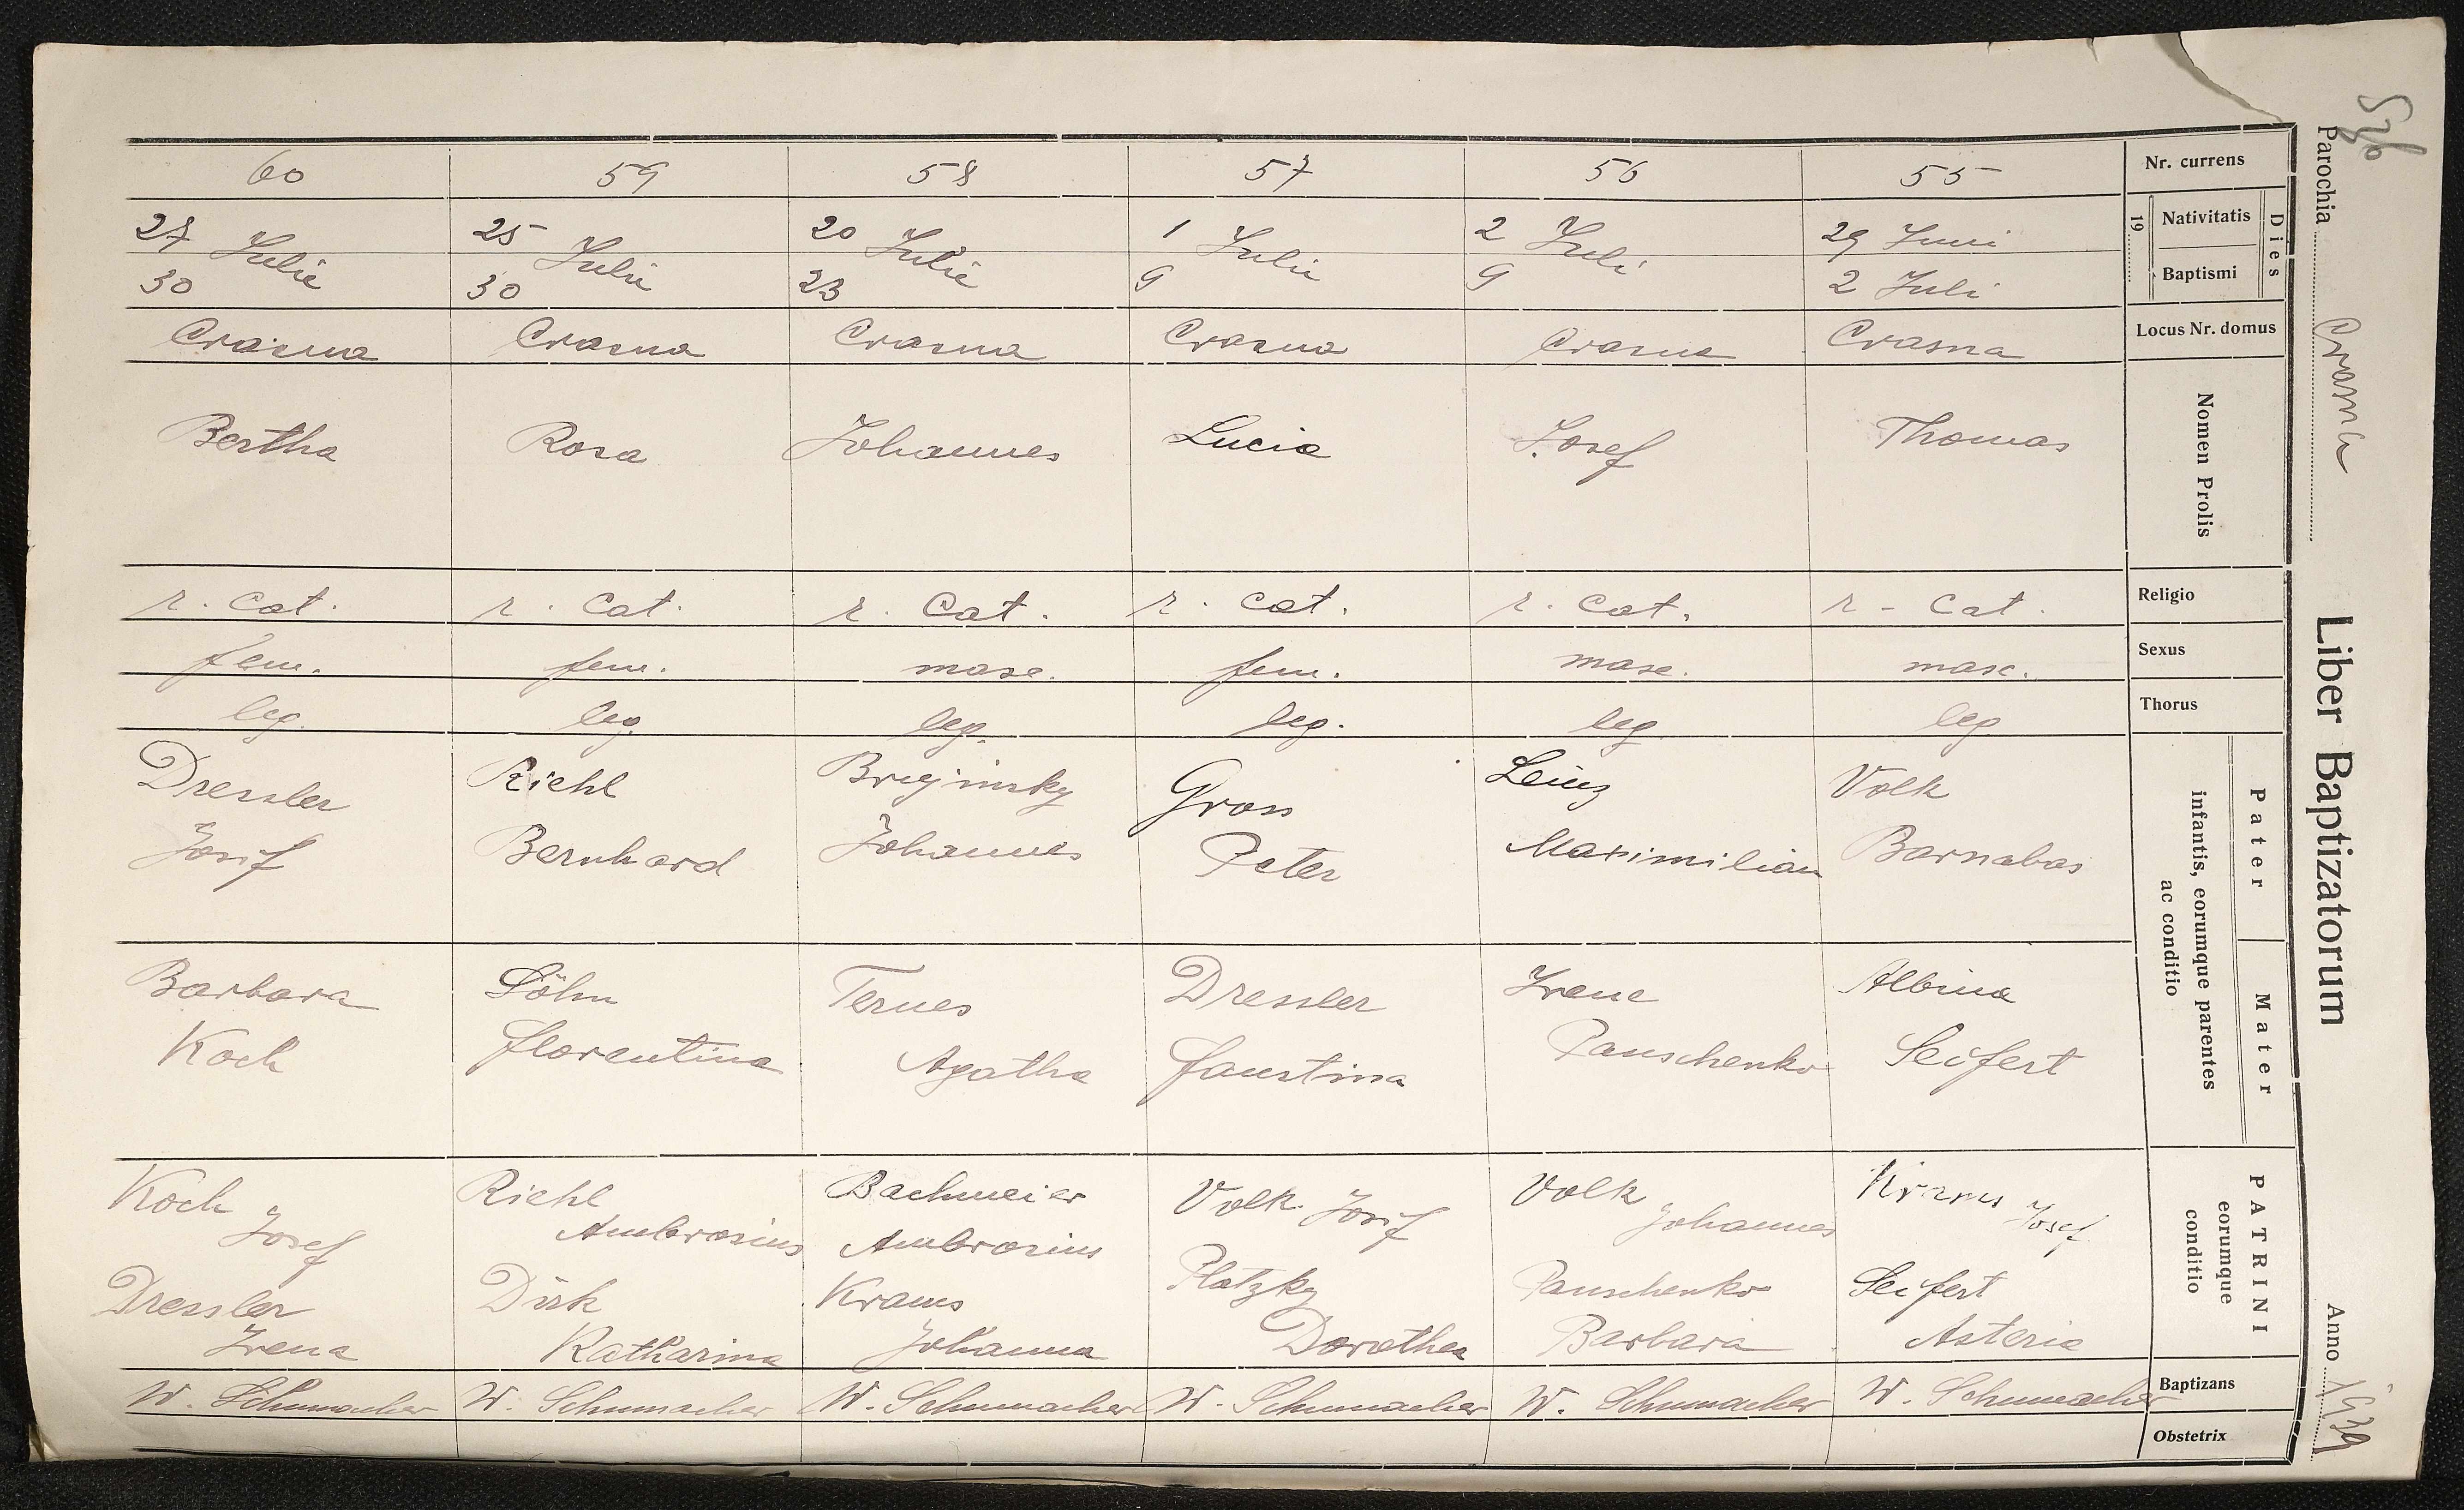 Parochia Crasna Liber Baptizatorum Anno 1939
Nr. currens
Dies
19
Nativitatis
Baptismi
Locus Nr. domus
Nomen Prolis
Religio
Sexus
Thorus
infantis, eorumque parentes
ac conditio
Pater
Mater
PATRINI
eorumque
conditio
Baptizans
Obstetrix
55
29 Juni
2 Juli
Crasna
Thomas
r - cat.
masc.
leg
Volk
Barnabas
Albina
Seifert
Kraus Josef
Seifert
Asteria
W. Schumacher
56
2 Juli
9
Crasna
Josef
r. cat.
masc.
leg
Leinz
Maximilian
Irene
Pauschenko
Volk
Johannes
Pauschenko
Barbara
W. Schumacher
57
1 Julie
9
Crasna
Lucia
r. cat.
fem.
leg.
Gross
Peter
Dressler
Faustina
Volk Josif
Platzky
Dorothea
W. Schumacher
58
20 Julie
23
Crasna
Johannes
r. Cat.
masc.
leg.
Bryjinsky
Johannes
Ternes
Agatha
Bachmeier
Ambrosius
Kraus
Johanna
W. Schumacher
59
25 Julie
30
Crasna
Rosa
r. cat.
fem.
leg.
Riehl
Bernhard
Söhn
Florentina
Riehl
Ambrosius
Dirk
Katharina
W. Schumacher
60
27 Julie
30
Crasna
Bertha
r. cat.
fem.
leg.
Dressler
Josif
Barbara
Koch
Koch
Josef
Dressler
Irena
W. Schumacher